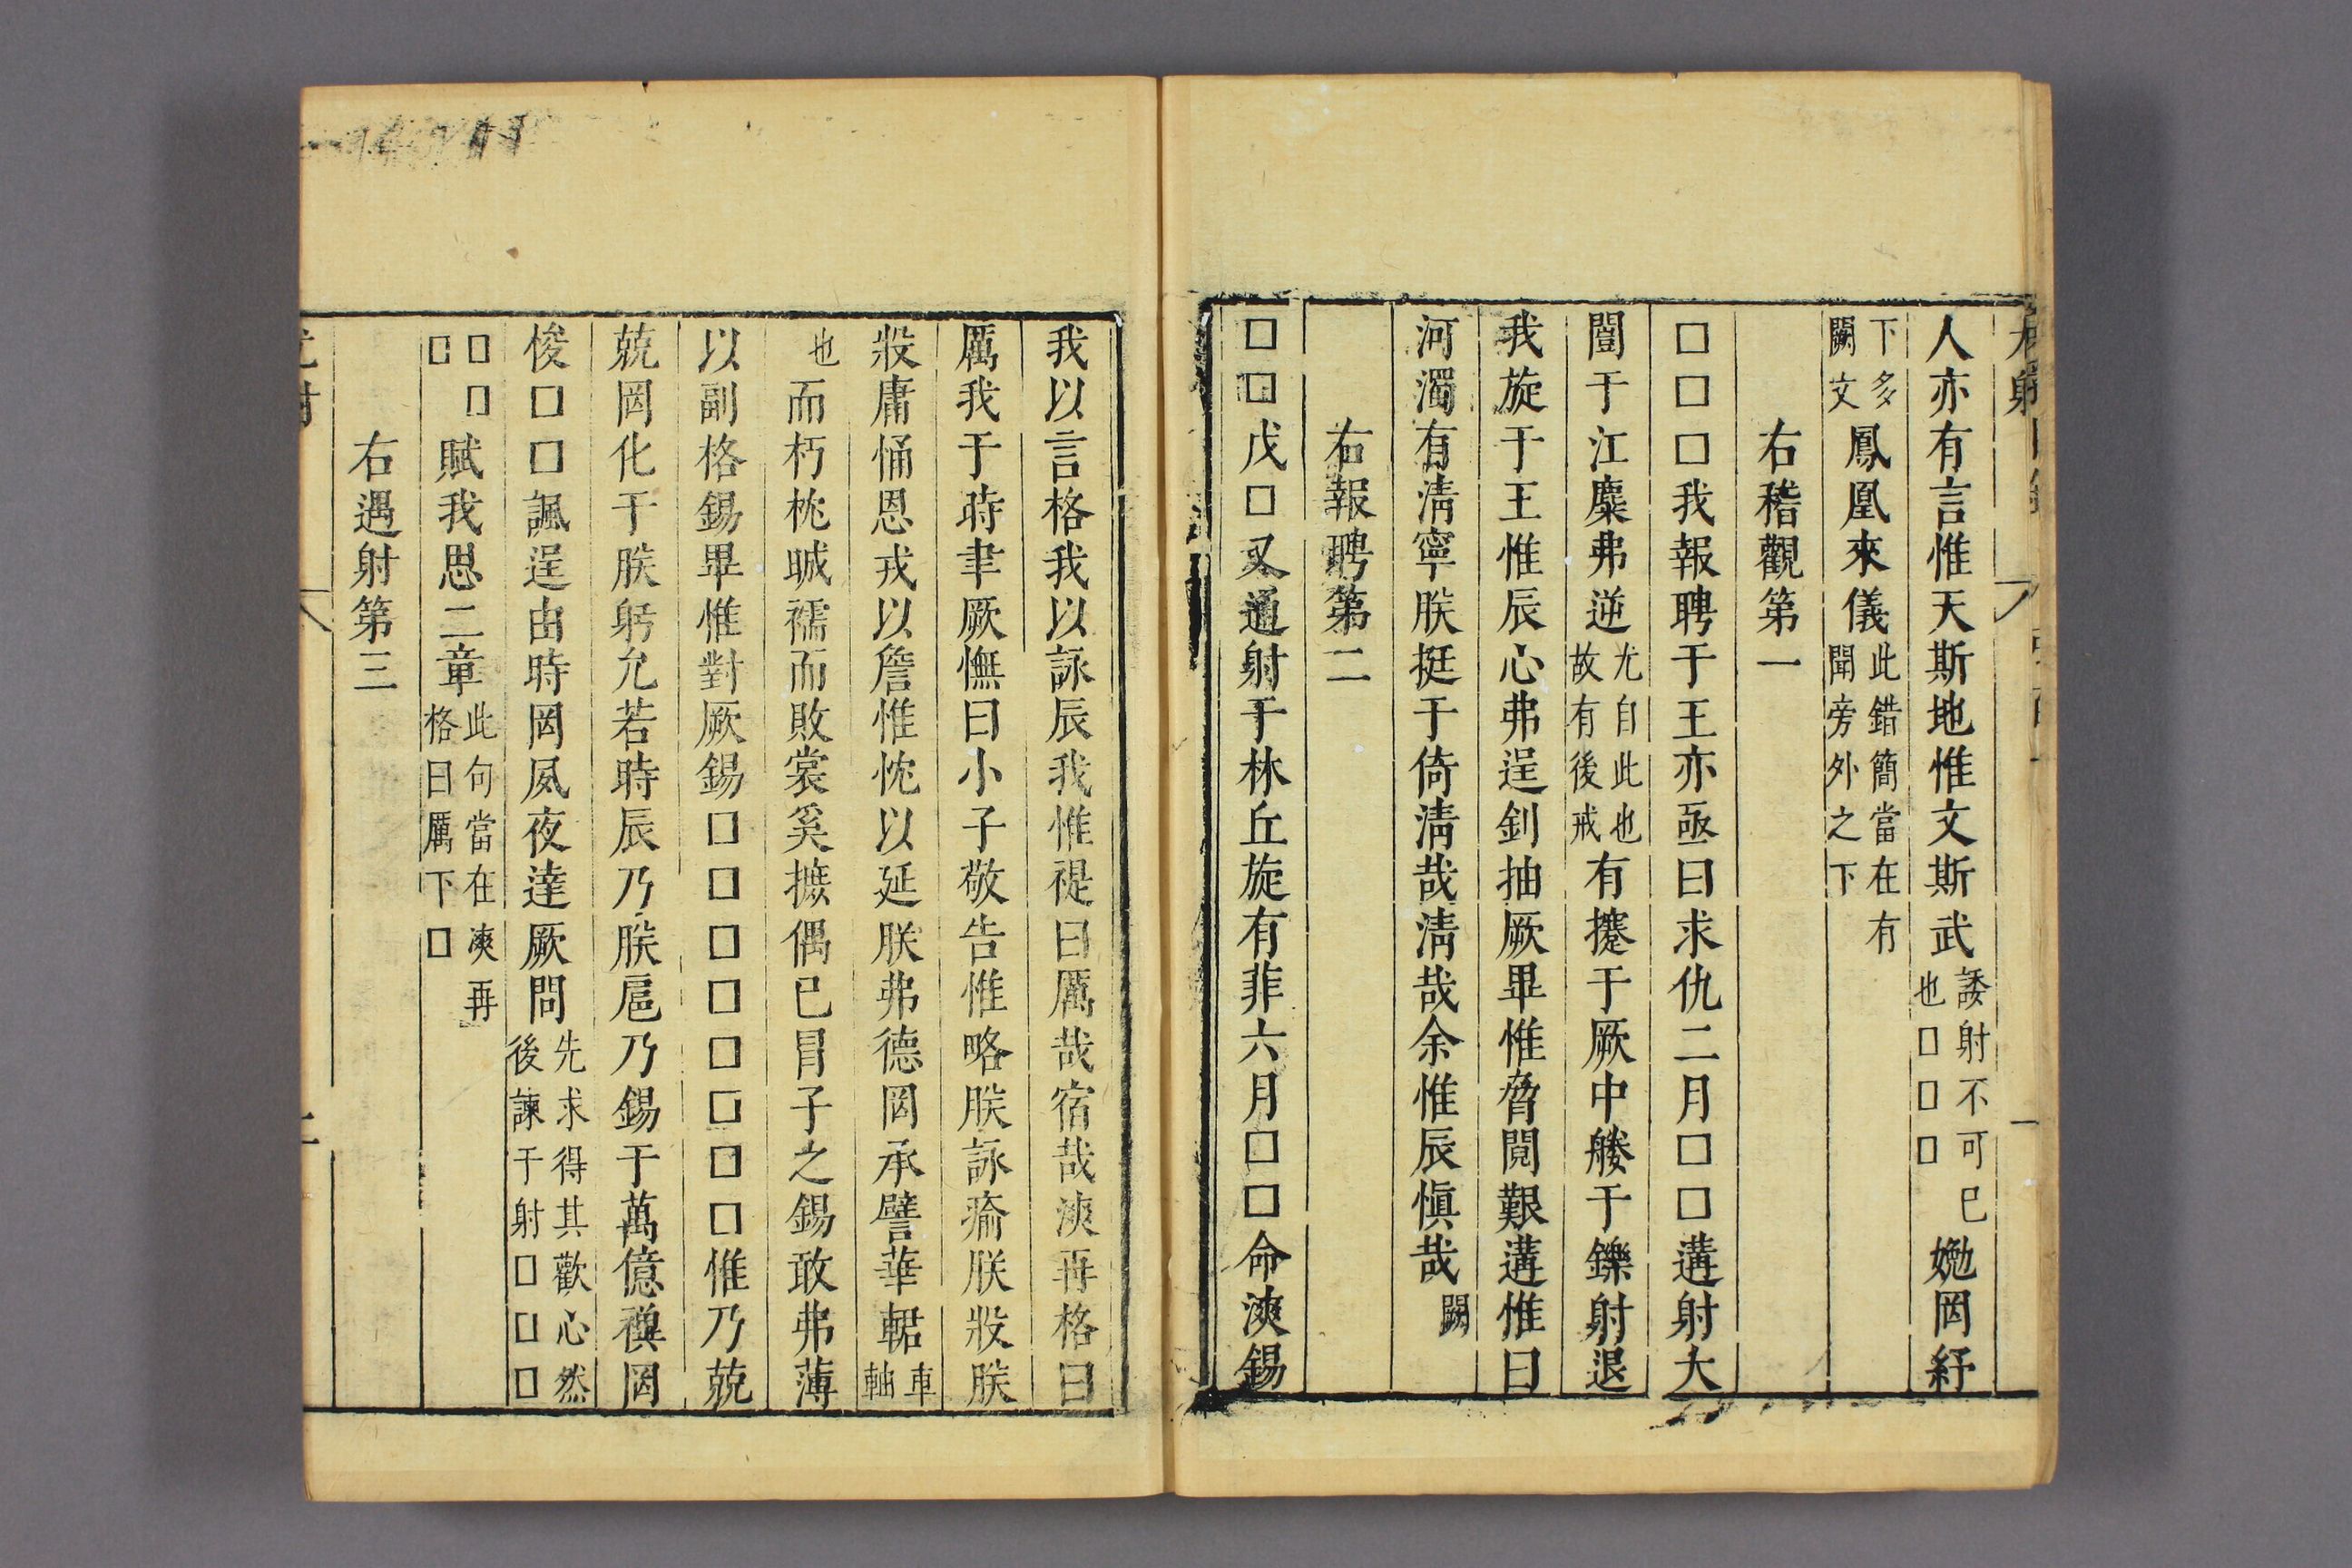 人亦有言惟天斯地惟文斯武諉射不可已也□□□㜸罔紓
下多闕文鳳凰來儀此錯簡當在有聞旁外之下
右稽觀第一
□□□我報聘于王亦亟曰求仇二月□□遘射大
闓于江麋弗逆尤自此也故有後戒有攓于厥中艛于鑠射退
我旋于王惟辰心弗逞釗抽厥畢惟脅閱艱遘惟曰
河濁有清寧朕挺于倚清哉清哉余惟辰愼哉闕
右報聘第二
□□戊□又遹射于林丘旋有菲六月□□命㴽錫
我以言格我以詠辰我惟禔曰厲哉宿哉㴽再格曰
厲我于時聿厥憮曰小子敬告惟略朕詠瘉朕戕朕
戕庸悀恩戎以詹惟忱以延朕弗德罔承譬華䡩車軸
也而朽杝晠襦而敗裳奚摭偶已冒子之錫敢弗薄
以副格錫畢惟對厥錫□□□□□□□□惟乃兢
兢罔化于朕躬允若時辰乃朕扈乃錫于萬億禩罔
悛□□諷逞由時罔夙夜達厥問先求得其歡心然後諫于射□□□
□□□賦我思二章此句當在㴽再格曰厲下□
右遇射第三